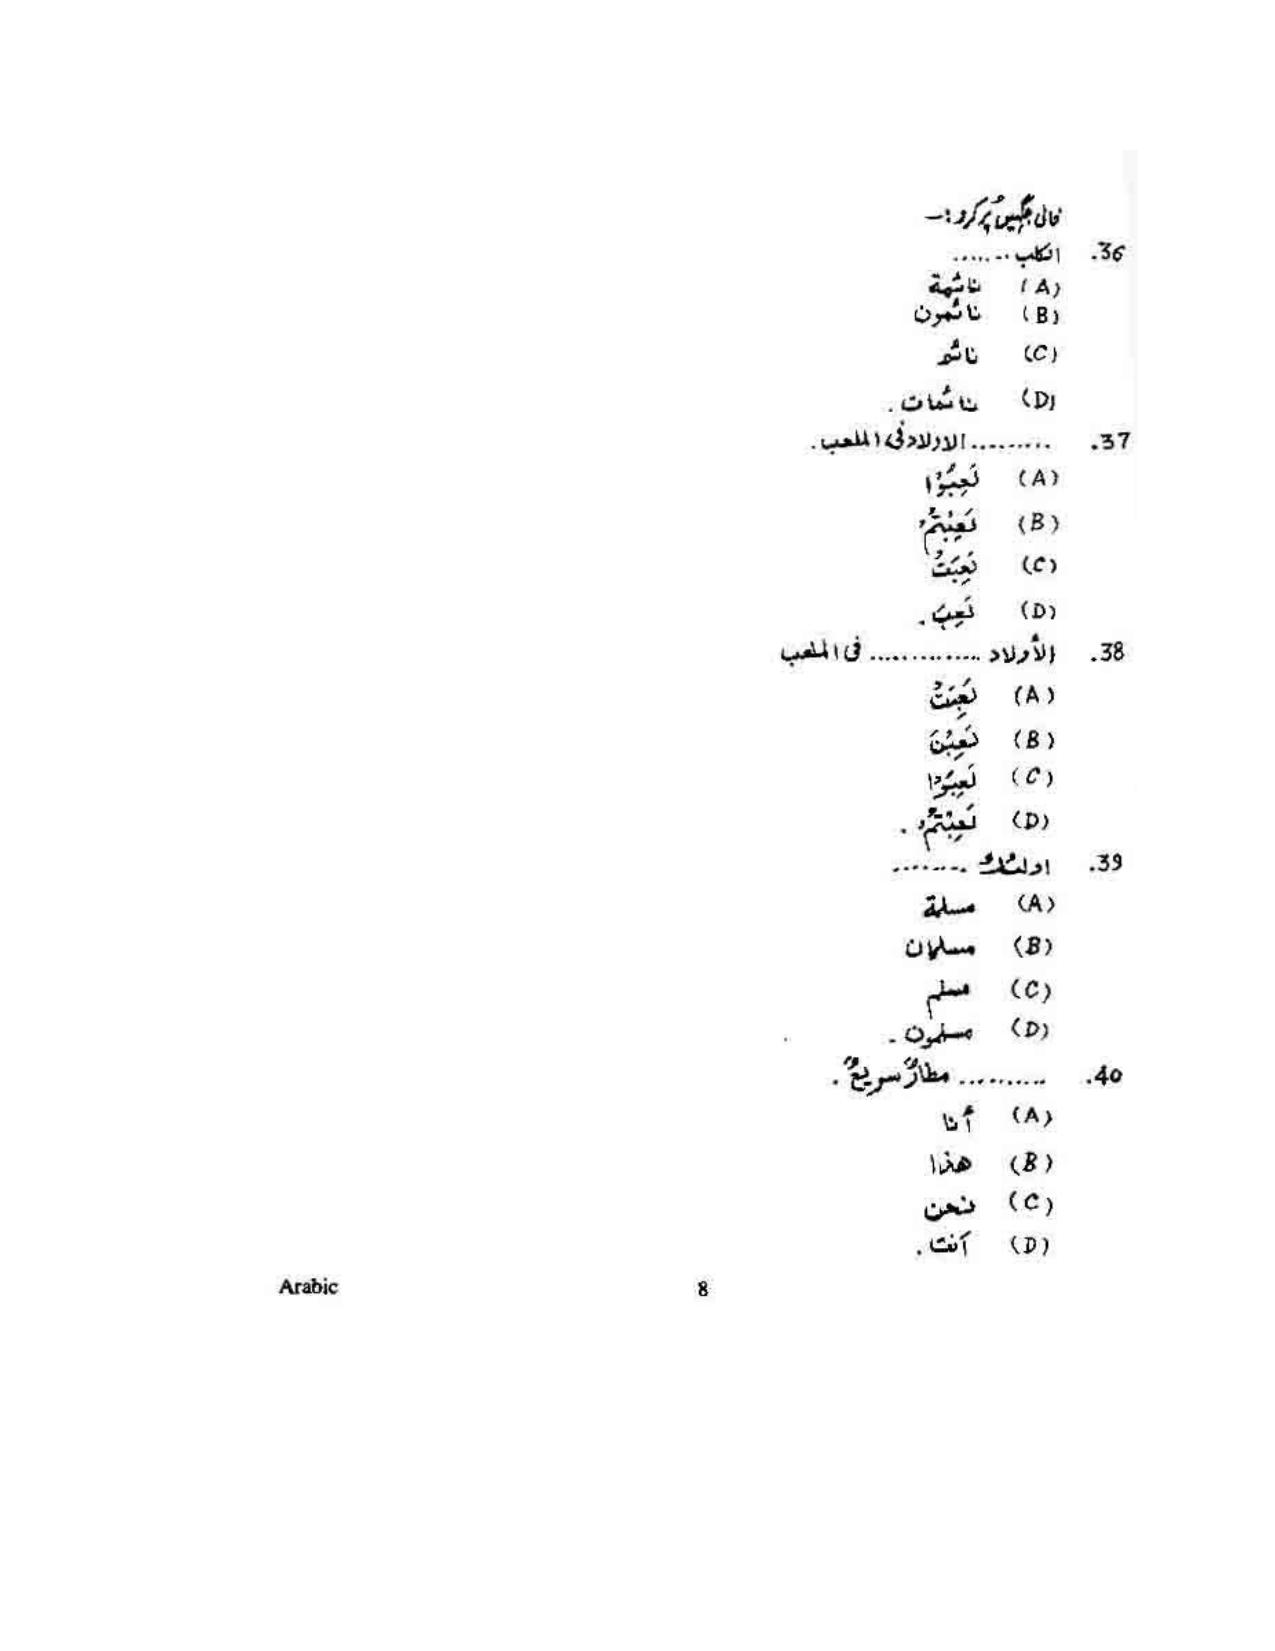 خالی جگہیں پُر کرو :–
.36 الكلب .......
(A) نائمة
(B) نائمون
(C) نائم
(D) نائمات .
.37 ......... الاولاد فى الملعب .
(A) لَعِبُوْا
(B) لَعِبْتُمْ
(C) لَعِبَتْ
(D) لَعِبَ .
.38 الأولاد ............. فى الملعب
(A) لَعِبَتْ
(B) لَعِبْنَ
(C) لَعِبُوْا
(D) لَعِبْتُمْ .
.39 اولئك ........
(A) مسلمة
(B) مسلمان
(C) مسلم
(D) مسلمون .
.40 .......... مطارٌ سريعٌ .
(A) أنا
(B) هذا
(C) نحن
(D) أنت .
Arabic 8